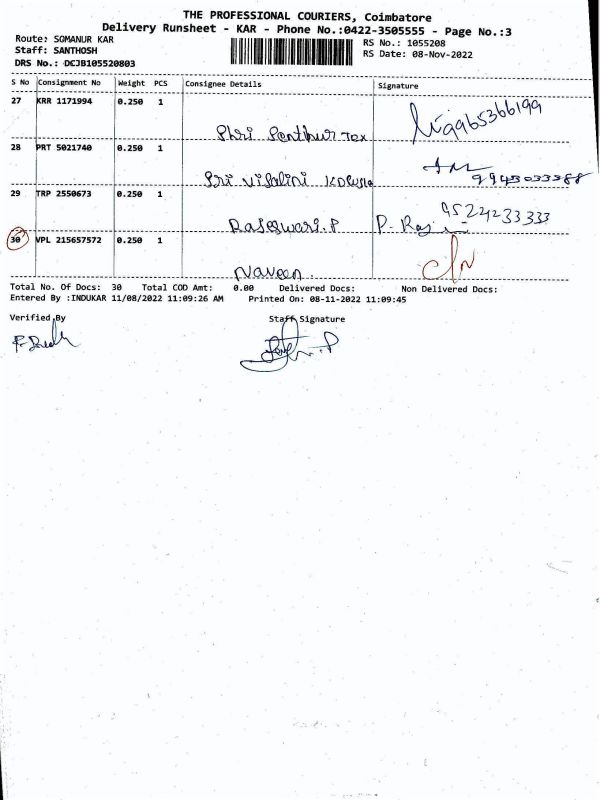 THE PROFESSIONAL COURIERS, Coimbatore
Delivery Runsheet - KAR - Phone No.:0422-3505555 - Page No.:3
Route: SOMANUR KAR
RS No.: 1055208
Staff: SANTHOSH
RS Date: 08-Nov-2022
DRS No.: DCJB105520803
S No Consignment No Weight PCS Consignee Details Signature
27 KRR 1171994 0.250 1
Shri Senthur Tex 9965366199
28 PRT 5021740 0.250 1
Sri Visalini 9943033388
29 TRP 2550673 0.250 1
Rajeswari.P P. Raj 9524233333
30 VPL 215657572 0.250 1
Naveen.
Total No. Of Docs: 30 Total COD Amt: 0.00 Delivered Docs: Non Delivered Docs:
Entered By :INDUKAR 11/08/2022 11:09:26 AM Printed On: 08-11-2022 11:09:45
Verified By Staff Signature